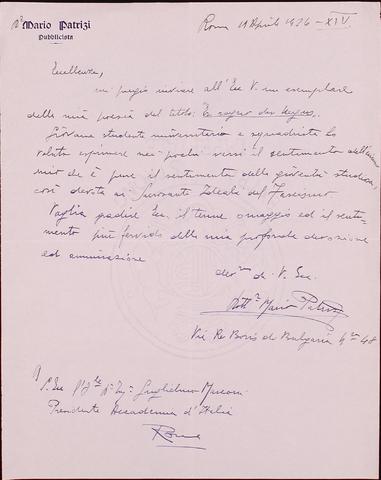 Dr Mario Patrizi
Pubblicista
Roma 11 Aprile 1936 - XIV
Eccellenza,
mi pregio inviare all'Ecc. V. un esemplare
della mia poesia dal titolo: Er sogno der Negus.
Giovane studente universitario e squadrista ho
voluto esprimere nei pochi versi il sentimento dell'animo
mio che è pure il sentimento della gioventù studiosa,
così devota ai Ideale del Fascismo
Voglia gradire Ecc. il tenue omaggio ed il senti-
mento più fervido della mia profonda devozione
ed ammirazione
dev.mo di V. Ecc.
Dott. Mario Patrizi
Via Re Boris di Bulgaria 48
S. Ecc. Guglielmo Marconi
Presidente Accademia d'Italia
Roma